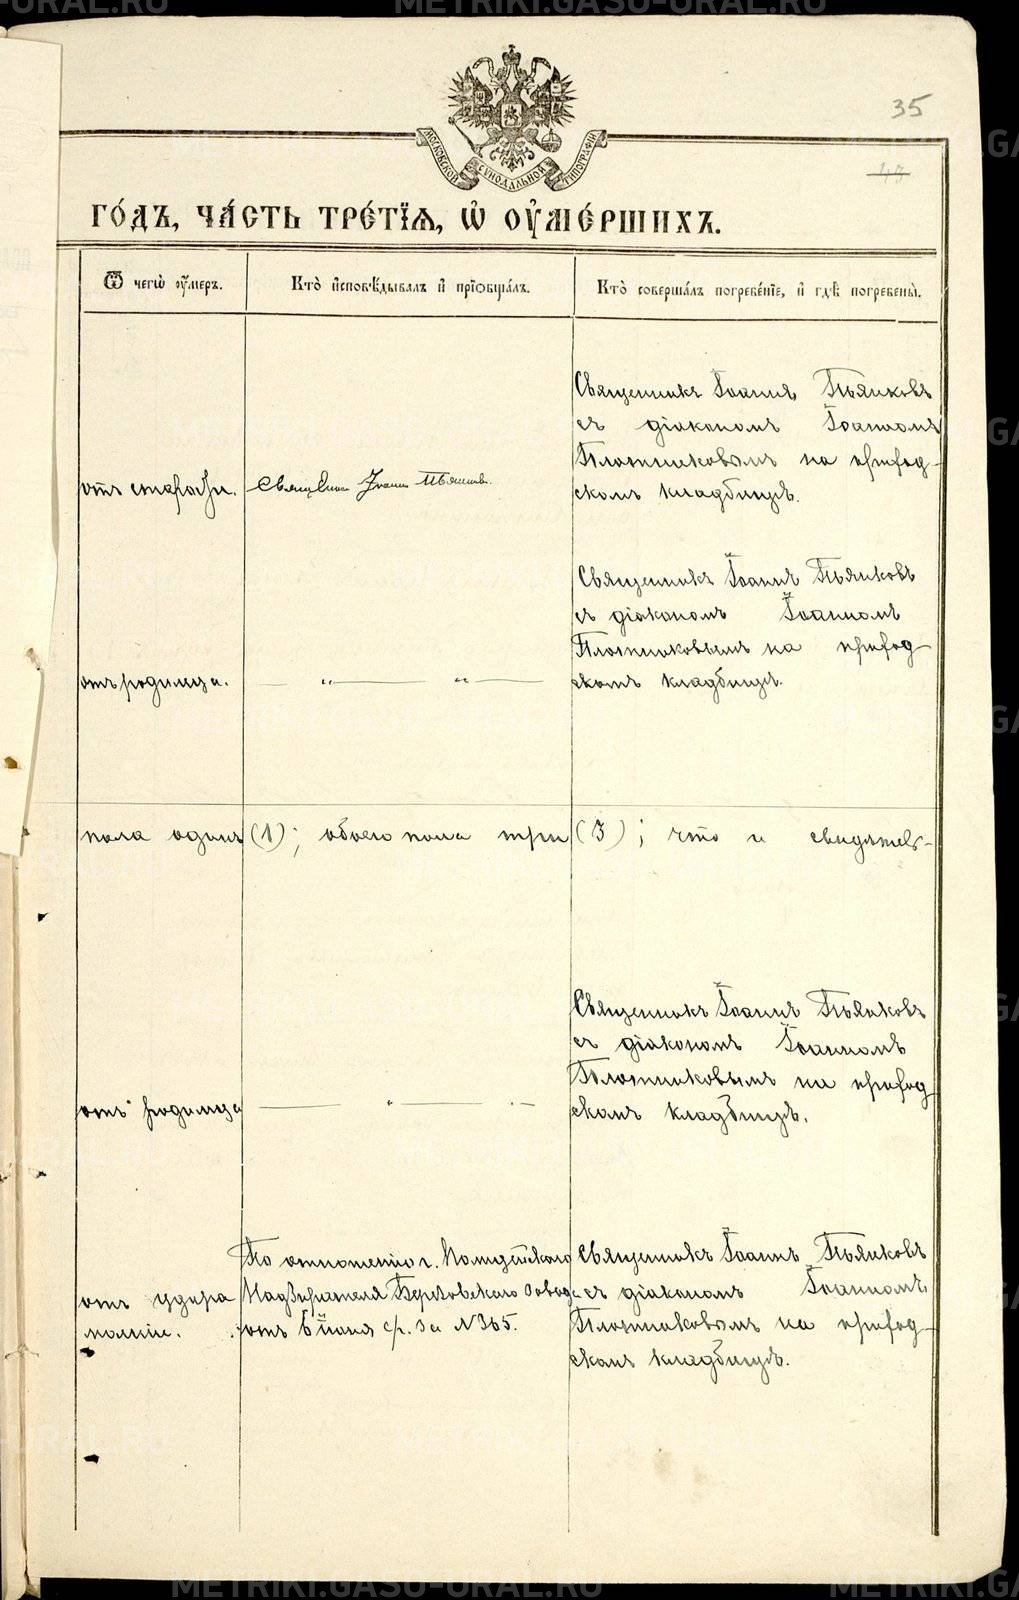 METRIKI.GASU-URAL.RU
35
47
МОСКОВСКОЙ СУНОДАЛЬНОЙ ТИПОГРАФІИ
ГО́ДЪ, ЧА́СТЬ ТРЕ́ТІѦ, Ѽ ОУ҆МЕ́РШИХЪ.
Ѿ чегѡ̀ оу҆́меръ.
Кто̀ и҆сповѣ́дывалъ и҆ прїѡбща́лъ.
Кто̀ соверша́лъ погребе́нїе, и҆ гдѣ̀ погребены̀.
отъ старости.
Священник Іоанн Пьянков.
Священникъ Іоаннъ Пьянковъ
съ діакономъ Іоанномъ
Плотниковымъ на приход-
скомъ кладбищѣ.
отъ родимца.
— „ — „ —
Священникъ Іоаннъ Пьянковъ
съ діакономъ Іоанномъ
Плотниковымъ на приход-
скомъ кладбищѣ.
пола одинъ (1); обоего пола три (3); что и свидѣтель-
отъ родимца
— „ —
Священникъ Іоаннъ Пьянковъ
съ діакономъ Іоанномъ
Плотниковымъ на приход
скомъ кладбищѣ.
отъ удара
молніи.
По отношенію г. Полицейскаго
Надзирателя Берёзовскаго Завода
отъ 6 іюня с/г. за №365.
Священникъ Іоаннъ Пьянковъ
съ діакономъ Іоанномъ
Плотниковымъ на приход-
скомъ кладбищѣ.
METRIKI.GASU-URAL.RU